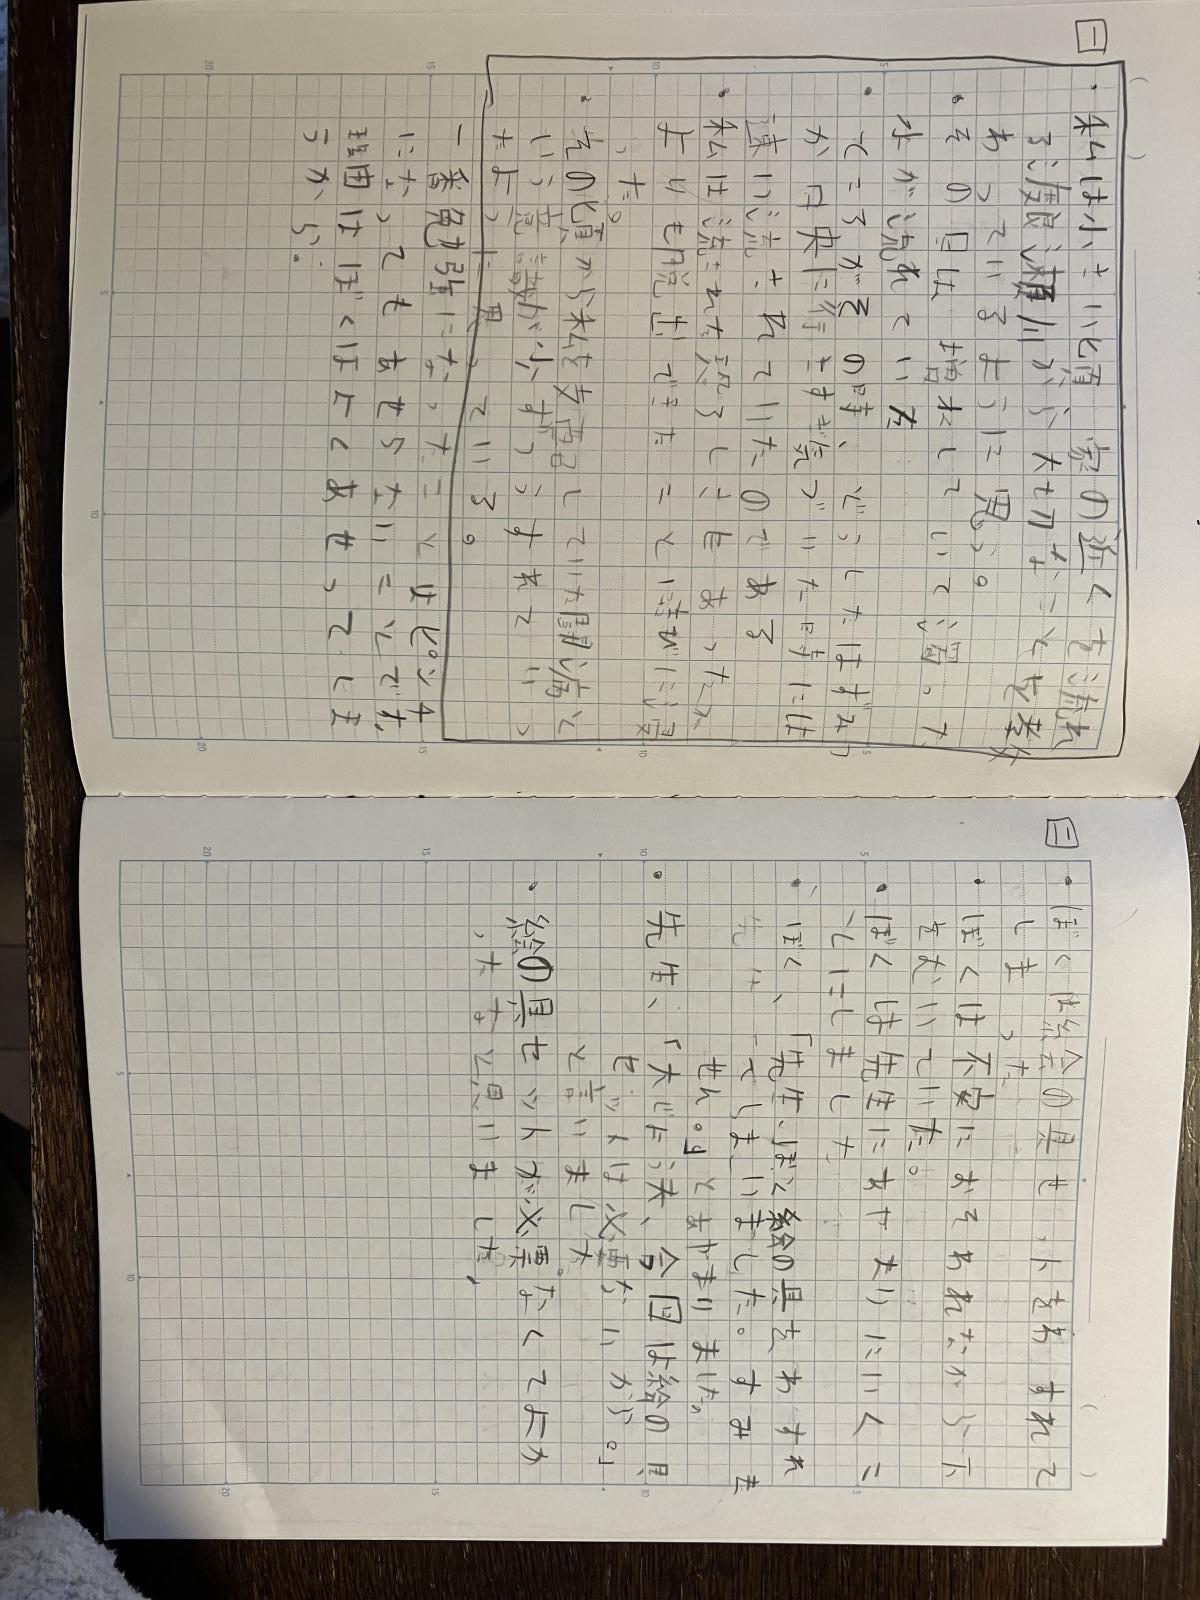 一
・私は小さい頃、家の近くを流れ
る渡良瀬川から大切なことを教
わっているように思う。
・その日は増水していて濁った
水が流れていた
・ところがその時、どうしたはずみ
か中央に行きすぎ気づいた時には
速い流されていたのである
・私は流された恐ろしさもあったが
それよりも脱出できたことの喜びに浸
った。
・その頃から私を支配していた闘病と
いう意識が少しずつうすれていっ
たように思っている。
一番勉強になったことはピンチ
になってもあせらないことです。
理由はぼくはよくあせってしま
うから。
二
・ぼくは絵の具セットをわすれて
しまった
・ぼくは不安におそわれながら下
をむいていた。
・ぼくは先生にあやまりにいくこ
とにしました
・ぼく、「先生、ぼく絵の具をわすれ
てしまいました。すみま
せん。」とあやまりました。
・先生、「大じょう夫、今日は絵の具
セットは必要ないから。」
と言いました。
・絵の具セットが必要なくてよか
ったなと思いました。